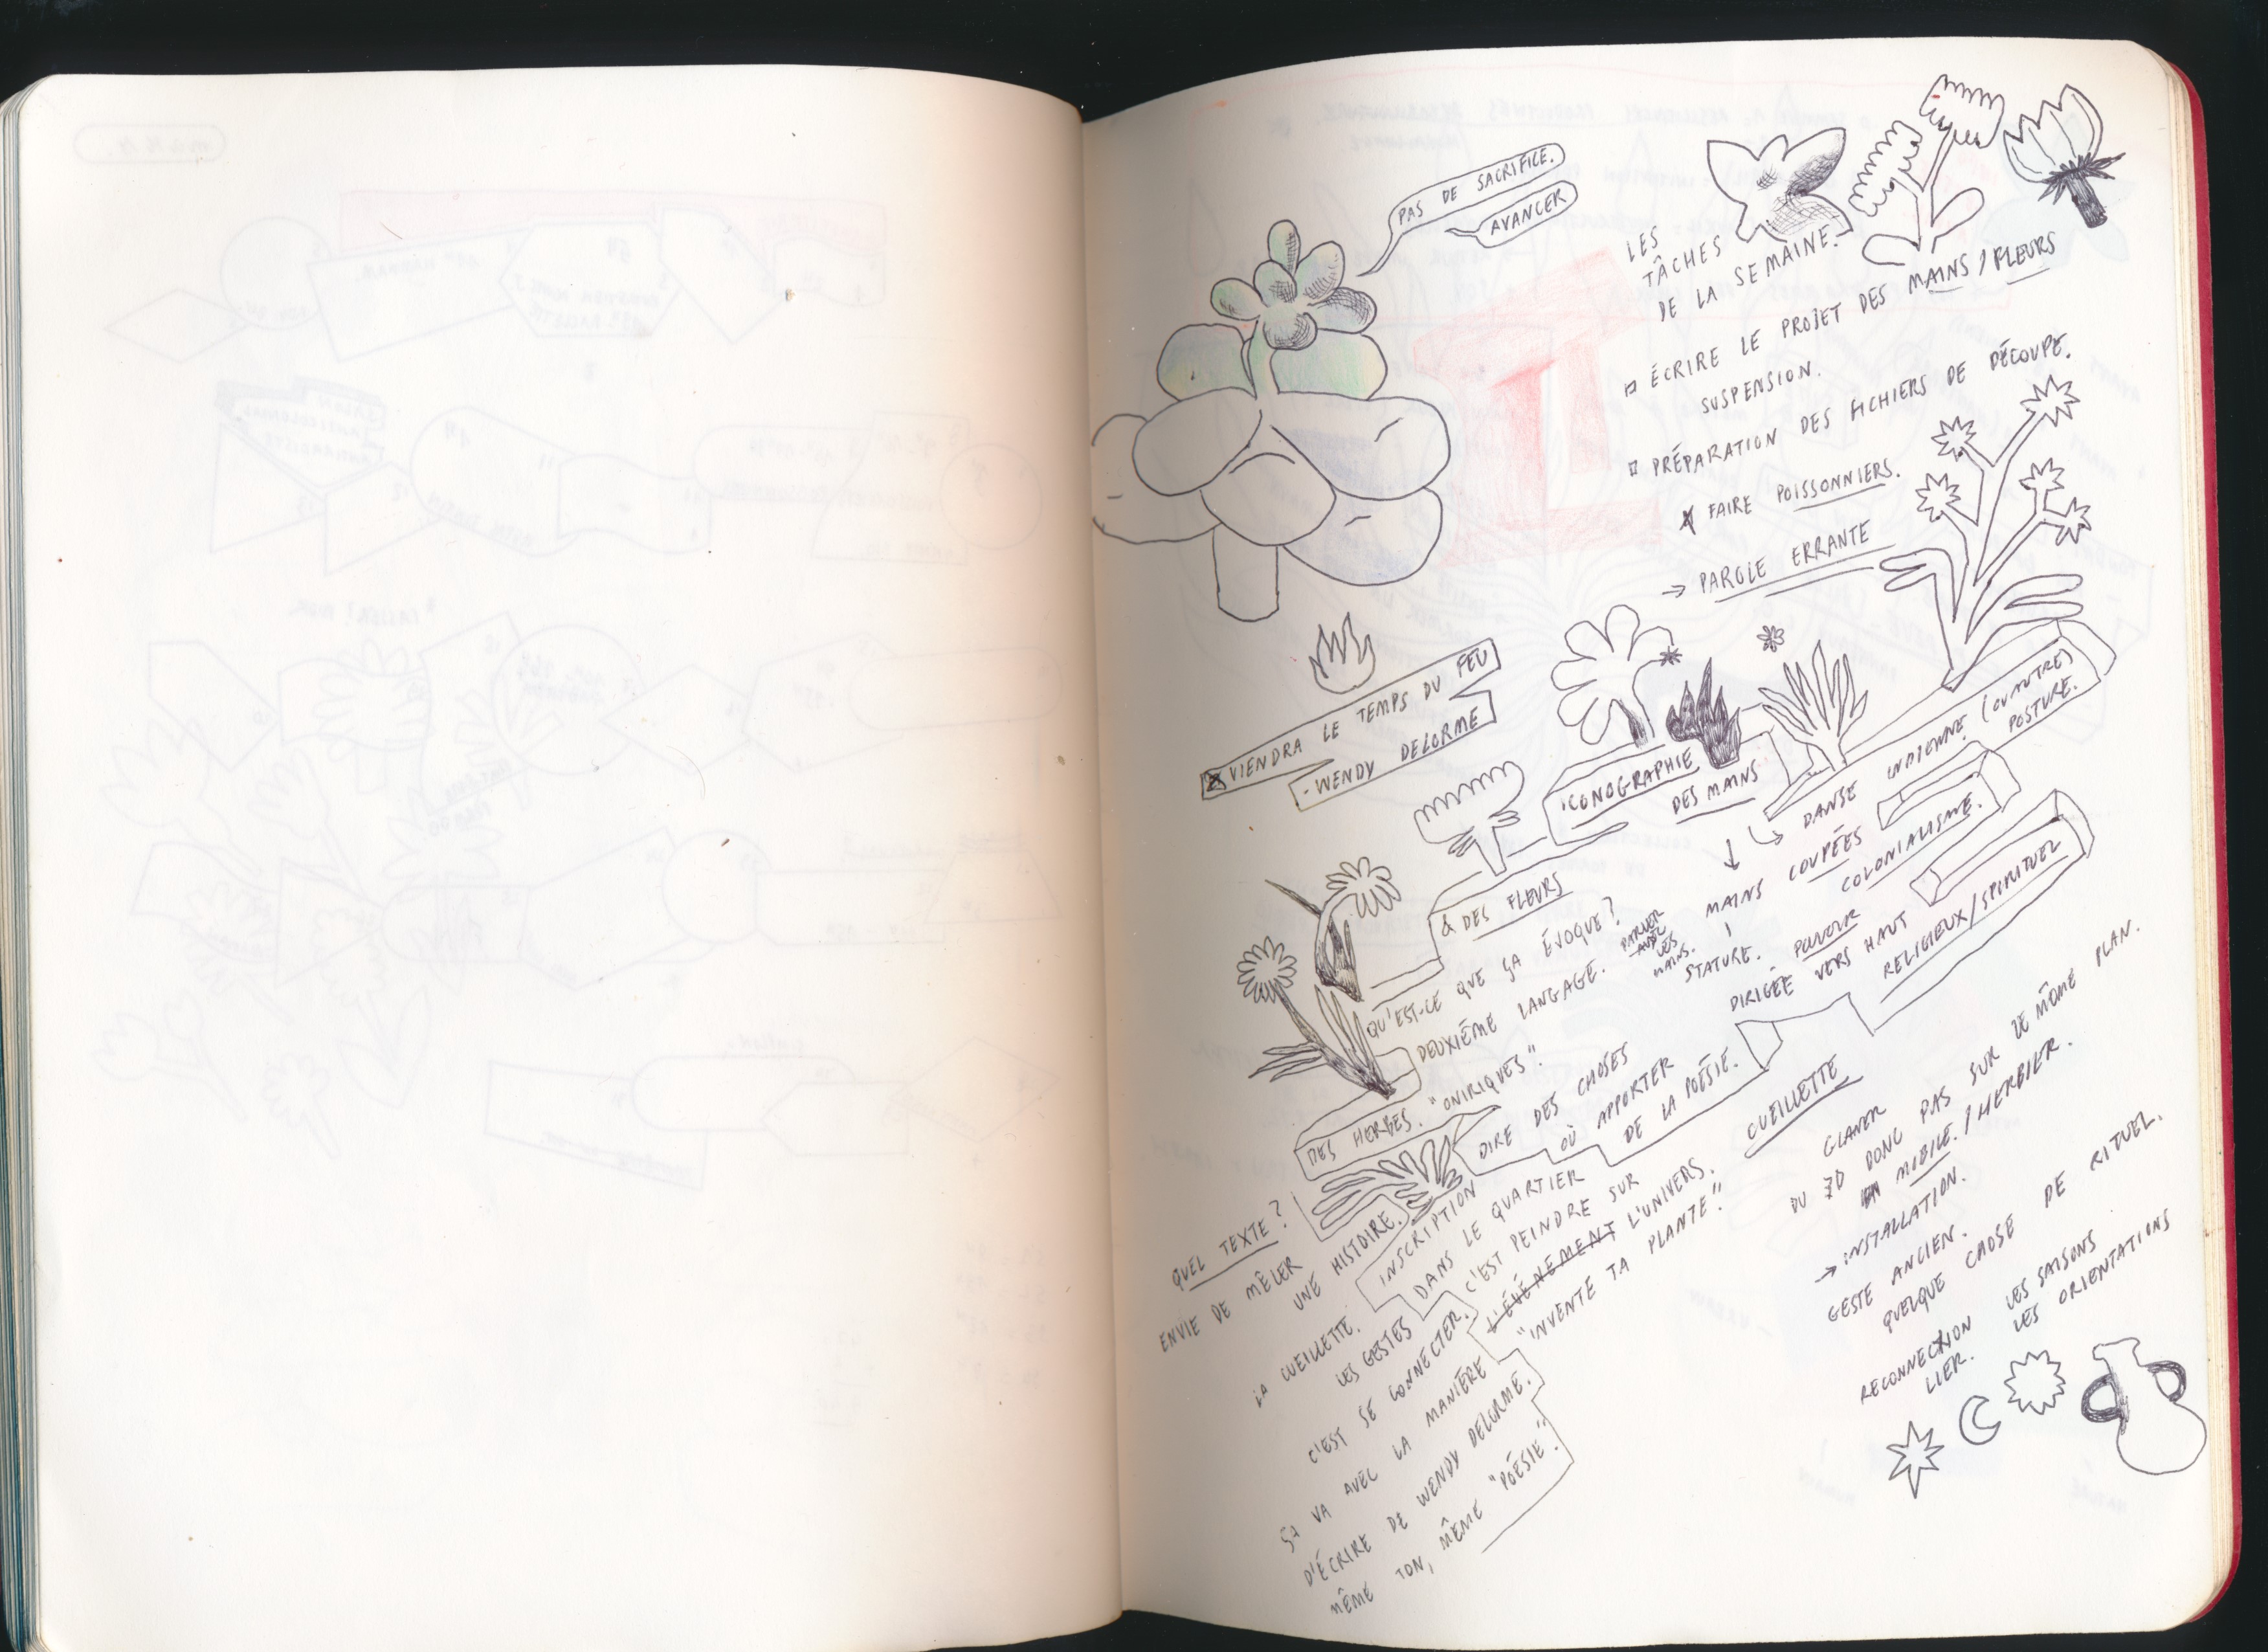 PAS DE SACRIFICE.
AVANCER
LES
TÂCHES
DE LA SEMAINE.
ÉCRIRE LE PROJET DES MAINS / FLEURS
SUSPENSION.
PRÉPARATION DES FICHIERS DE DÉCOUPE.
FAIRE POISSONNIERS.
→ PAROLE ERRANTE
VIENDRA LE TEMPS DU FEU
- WENDY DELORME
ICONOGRAPHIE
DES MAINS
& DES FLEURS
DANSE INDIENNE (OU AUTRE)
POSTURE.
MAINS COUPÉES
COLONIALISME.
STATURE. POUVOIR
DIRIGÉE VERS HAUT
RELIGIEUX/SPIRITUEL
QU'EST-CE QUE ÇA ÉVOQUE?
DEUXIÈME LANGAGE.
PARLER
AVEC
LES
MAINS.
"ONIRIQUES".
DES HERBES.
DIRE DES CHOSES
OÙ APPORTER
DE LA POÉSIE.
QUEL TEXTE?
ENVIE DE MÊLER
UNE HISTOIRE.
INSCRIPTION
DANS LE QUARTIER
LA CUEILLETTE.
LES GESTES
C'EST PEINDRE SUR
L'ÉVÉNEMENT L'UNIVERS.
C'EST SE CONNECTER.
"INVENTE TA PLANTE".
ÇA VA AVEC LA MANIÈRE
D'ÉCRIRE DE WENDY DELORME.
MÊME TON, MÊME "POÉSIE".
CUEILLETTE
GLANER
DU 3D DONC PAS SUR LE MÊME PLAN.
MOBILE. / HERBIER.
→ INSTALLATION.
GESTE ANCIEN.
QUELQUE CHOSE DE RITUEL.
RECONNECTION LES SAISONS
LIER. LES ORIENTATIONS